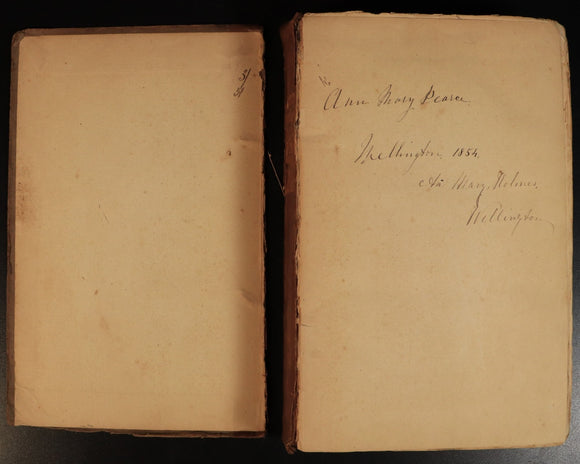 5/
Ann Mary Pearce.
Wellington, 1854,
Mary Holmes,
Wellington